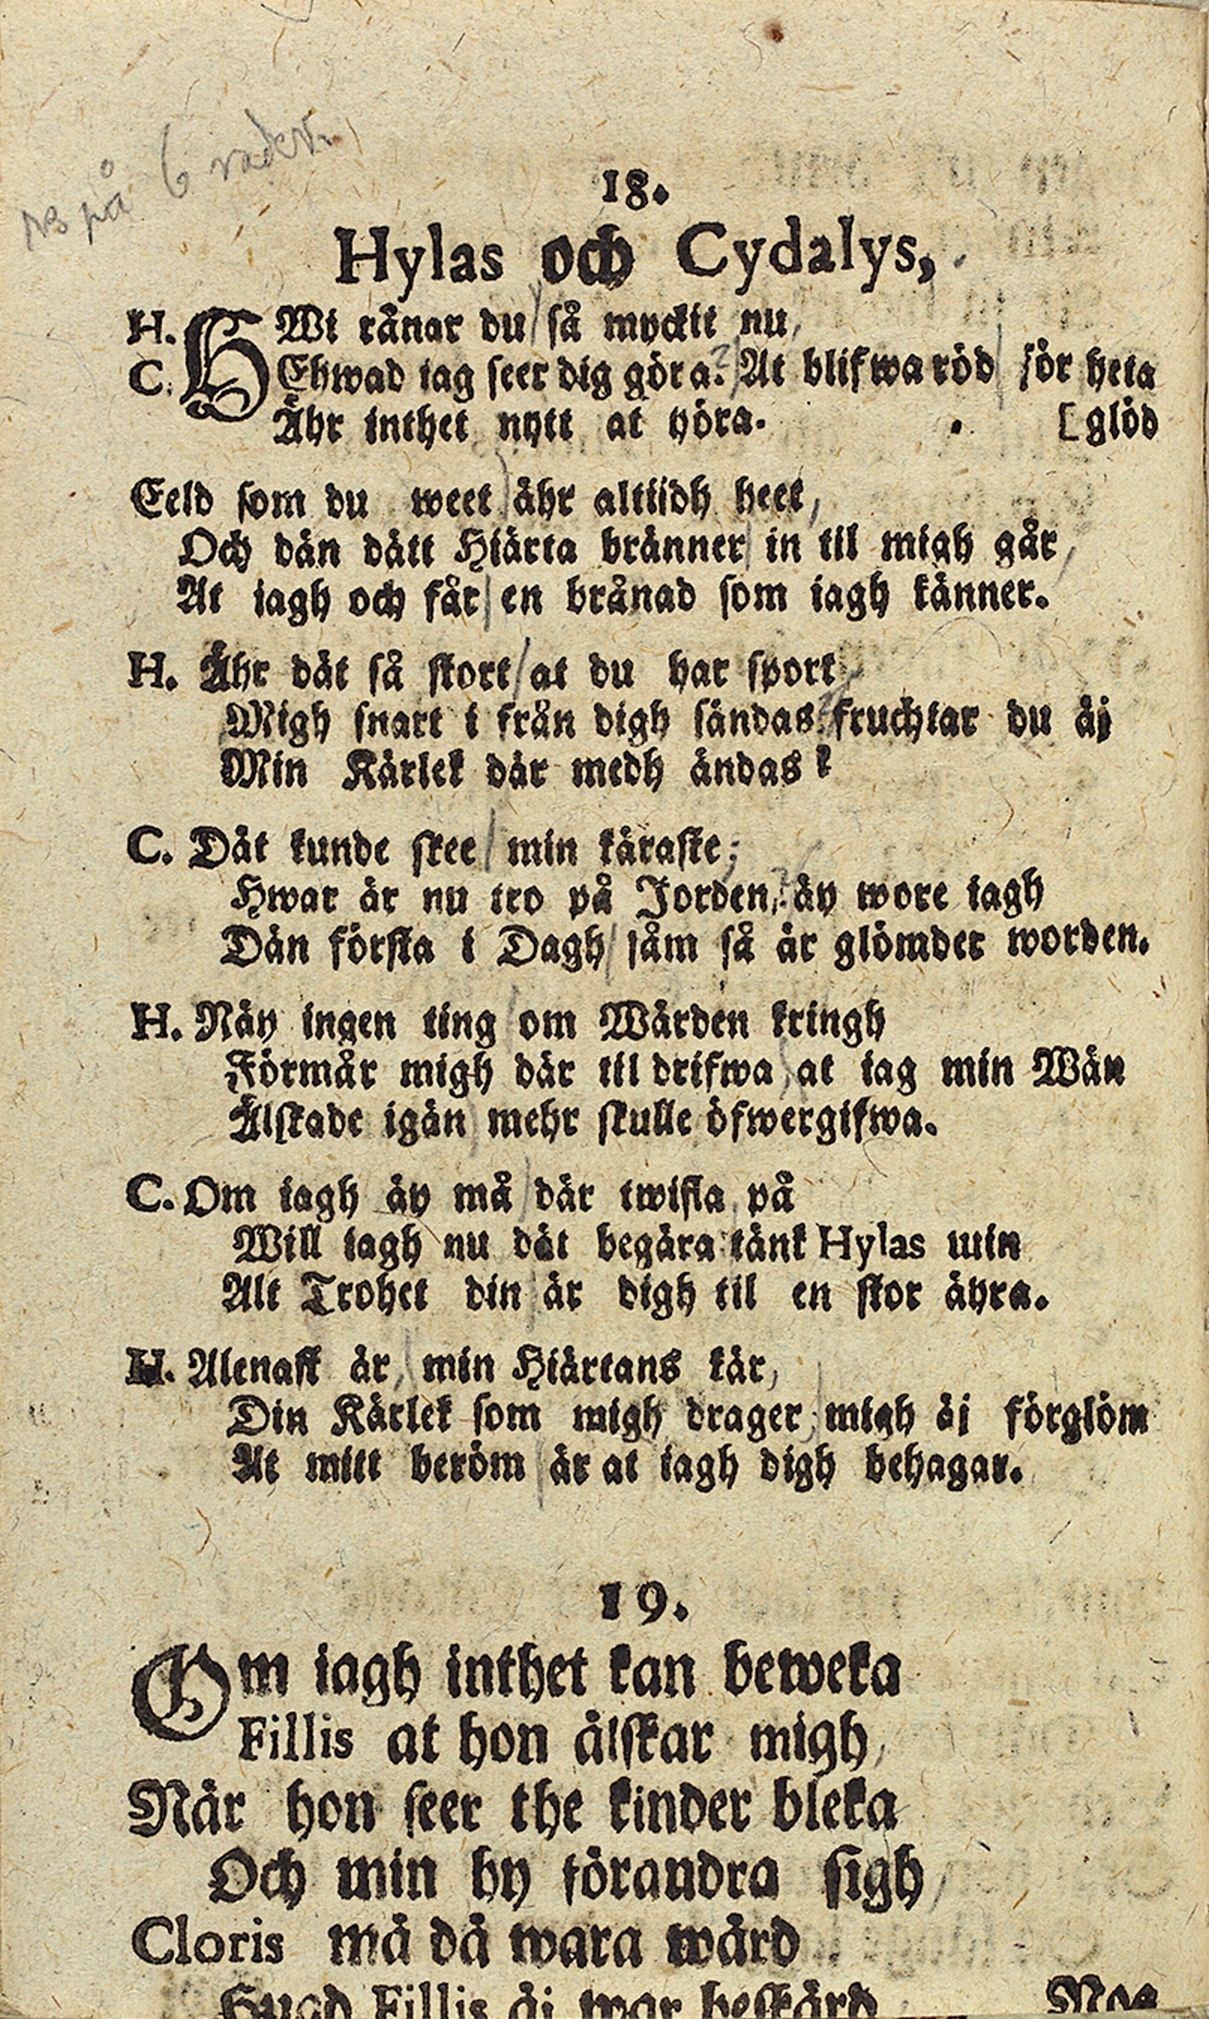 NB på 6 rader.
18.
Hylas och Cydalys,
H. HWi rånar du så myckit nu,
C. Ehwad iag seer dig göra? At blifwa röd för heta
Ähr inthet nytt at höra. [glöd
Eeld som du weet ähr altiidh heet,
Och dän dätt Hiärta bränner in til migh går,
At iagh och får en brånad som iagh känner.
H. Ähr dät så stort at du har sport
Migh snart i från digh sändas? fruchtar du äj
Min Kärlek där medh ändas?
C. Dät kunde skee min käraste;
Hwar är nu tro på Jorden, äy wore iagh
Dän första i Dagh såm så är glömder worden.
H. Näy ingen ting om Wärden kringh
Förmår migh där til drifwa, at iag min Wän
Älskade igän mehr skulle öfwergifwa.
C. Om iagh äy må där twifla på
Will iagh nu dät begära tänk Hylas min
Alt Trohet din är digh til en stor äyra.
H. Alenast är, min Hiärtans kär,
Din Kärlek som migh drager, migh äj förglöm
At mitt beröm är at iagh digh behagar.
19.
Om iagh inthet kan beweka
Fillis at hon älskar migh,
När hon seer the kinder bleka
Och min hy förandra sigh,
Cloris må då wara wärd
Hwad Fillis äi war beskärd